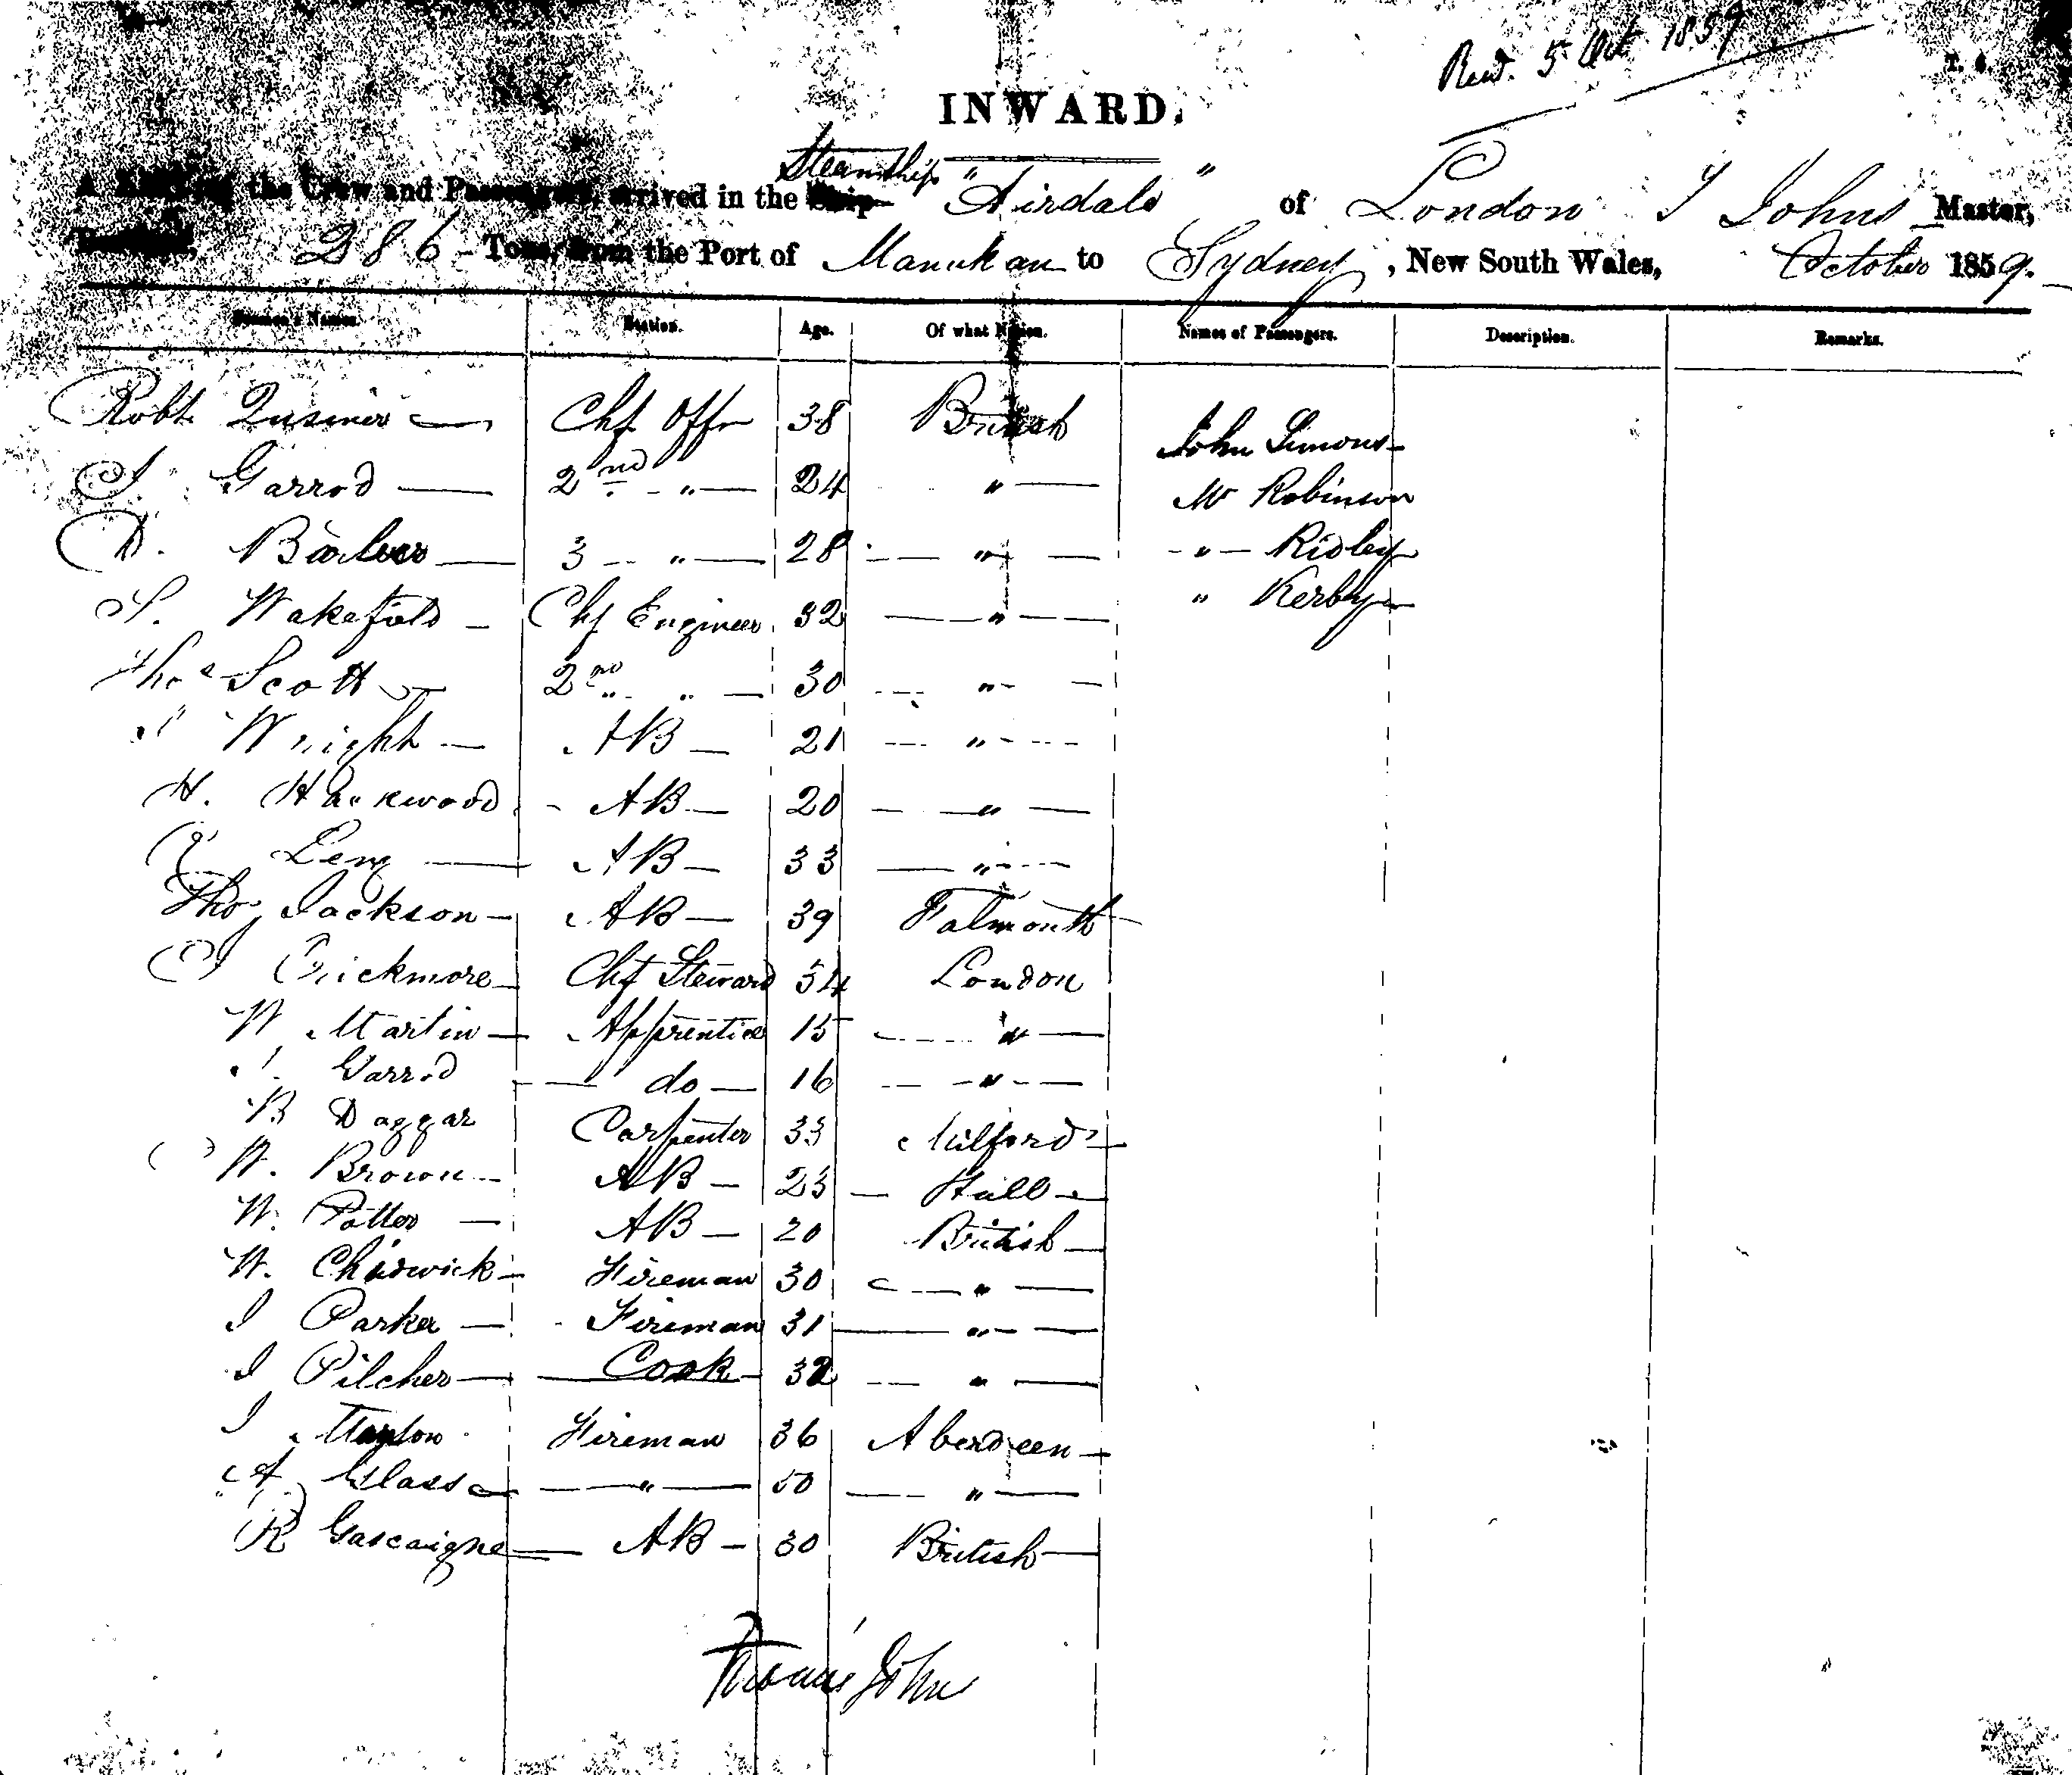 5 Oct 1859
INWARD.
Steamship
the Crew and Passengers, arrived in the Ship "Airdale" of London T Johns Master,
286 Tons, from the Port of Manukau to Sydney, New South Wales, October 1859.
Seamen's Names. Station. Age. Of what Nation. Names of Passengers. Description. Remarks.
Robt Chf Offr 38 British John Simons
Garrod 2nd " 24 " Mr Robinson
D. 3 " 28 " " Ridley
Wakefield Chf Engineer 32 " " Kerby
Thos Scott 2nd " 30 "
Wright AB 21 "
H. Hackwood AB 20 "
AB 33 "
Thos Jackson AB 39 Falmouth
Crickmore Chf Steward 34 London
W Martin Apprentice 15 "
Garrod do 16 "
B Daggar Carpenter 33 Milford
W. Brown AB 23 Hull
W. Potter AB 20 British
W. Chadwick Fireman 30 "
J Parker Fireman 31 "
J Pilcher Cook 32 "
J Fireman 36 Aberdeen
A Glass " 50 "
R Gascaigne AB 30 British
Thomas John